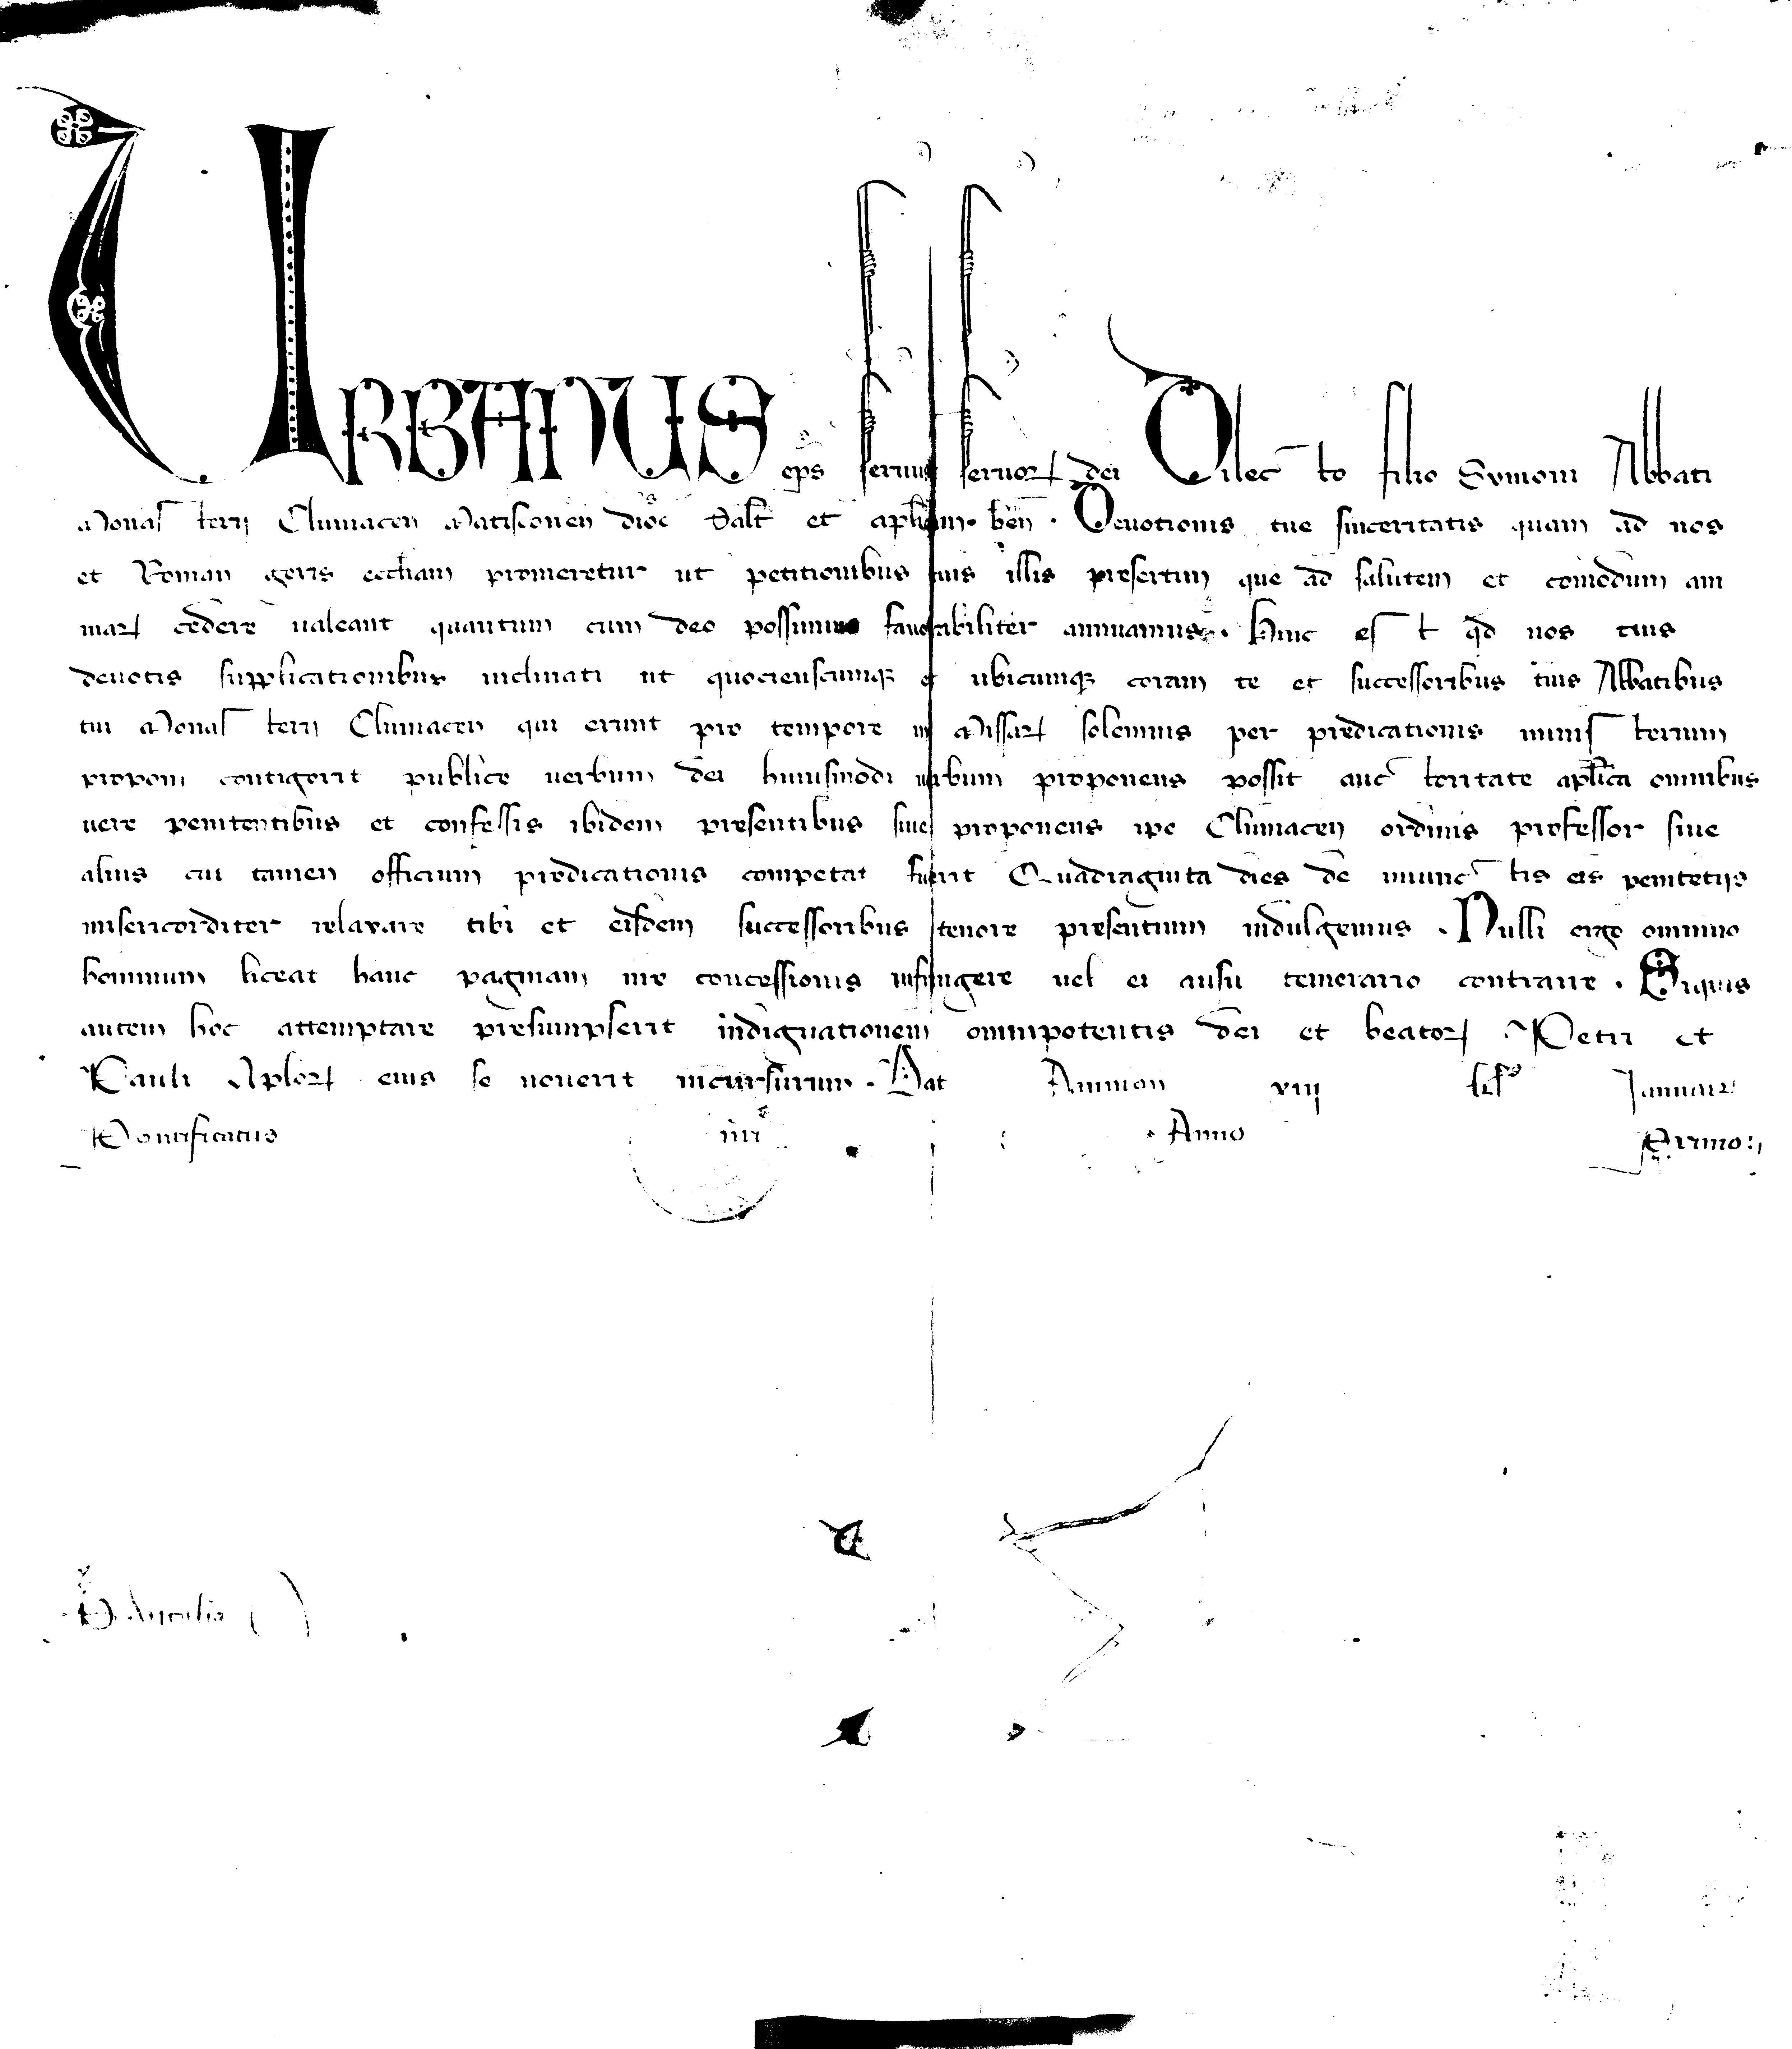 URBANUS ep̄s seruus seruoꝝ dei Dilecto filio Symoni Abbati
Monasterij Cluniacen̄ Matisconen̄ dioc̄ Salt̄ et apl̄icam ben̄ . Deuotionis tue sinceritatis quam ad nos
et Roman̄ geris eccl̄iam promeretur ut petitionibus tuis illis presertim que ad salutem et com̄odum ani
maꝝ cedere ualeant quantum cum deo possumus fauorabiliter annuamus . Hinc est qd̄ nos tuis
deuotis supplicationibus inclinati ut quocienscumqꝫ et ubicumqꝫ coram te et successoribus tuis Abbatibus
tui Monasterij Cluniacen̄ qui erunt pro tempore in Missaꝝ solemniis per predicationis ministerium
proponi contigerit publice uerbum dei huiusmodi uerbum proponens possit auctoritate apl̄ica omnibus
uere penitentibus et confessis ibidem presentibus siue proponens ip̄e Cluniacen̄ ordinis professor siue
alius cui tamen officium predicationis competat fuerit Quadraginta dies de iniunctis eis penitētijs
misericorditer relaxare tibi et eisdem successoribus tenore presentium indulgemus . Nulli ergo omnino
hominum liceat hanc paginam nr̄e concessionis infringere uel ei ausu temerario contraire . Siquis
autem hoc attemptare presumpserit indignationem omnipotentis dei et beatoꝝ Petri et
Pauli Apl̄oꝝ eius se nouerit incursurum . Dat Auinion̄ xiij kl̄ Januarij
Pontificatus nr̄i Anno Primo